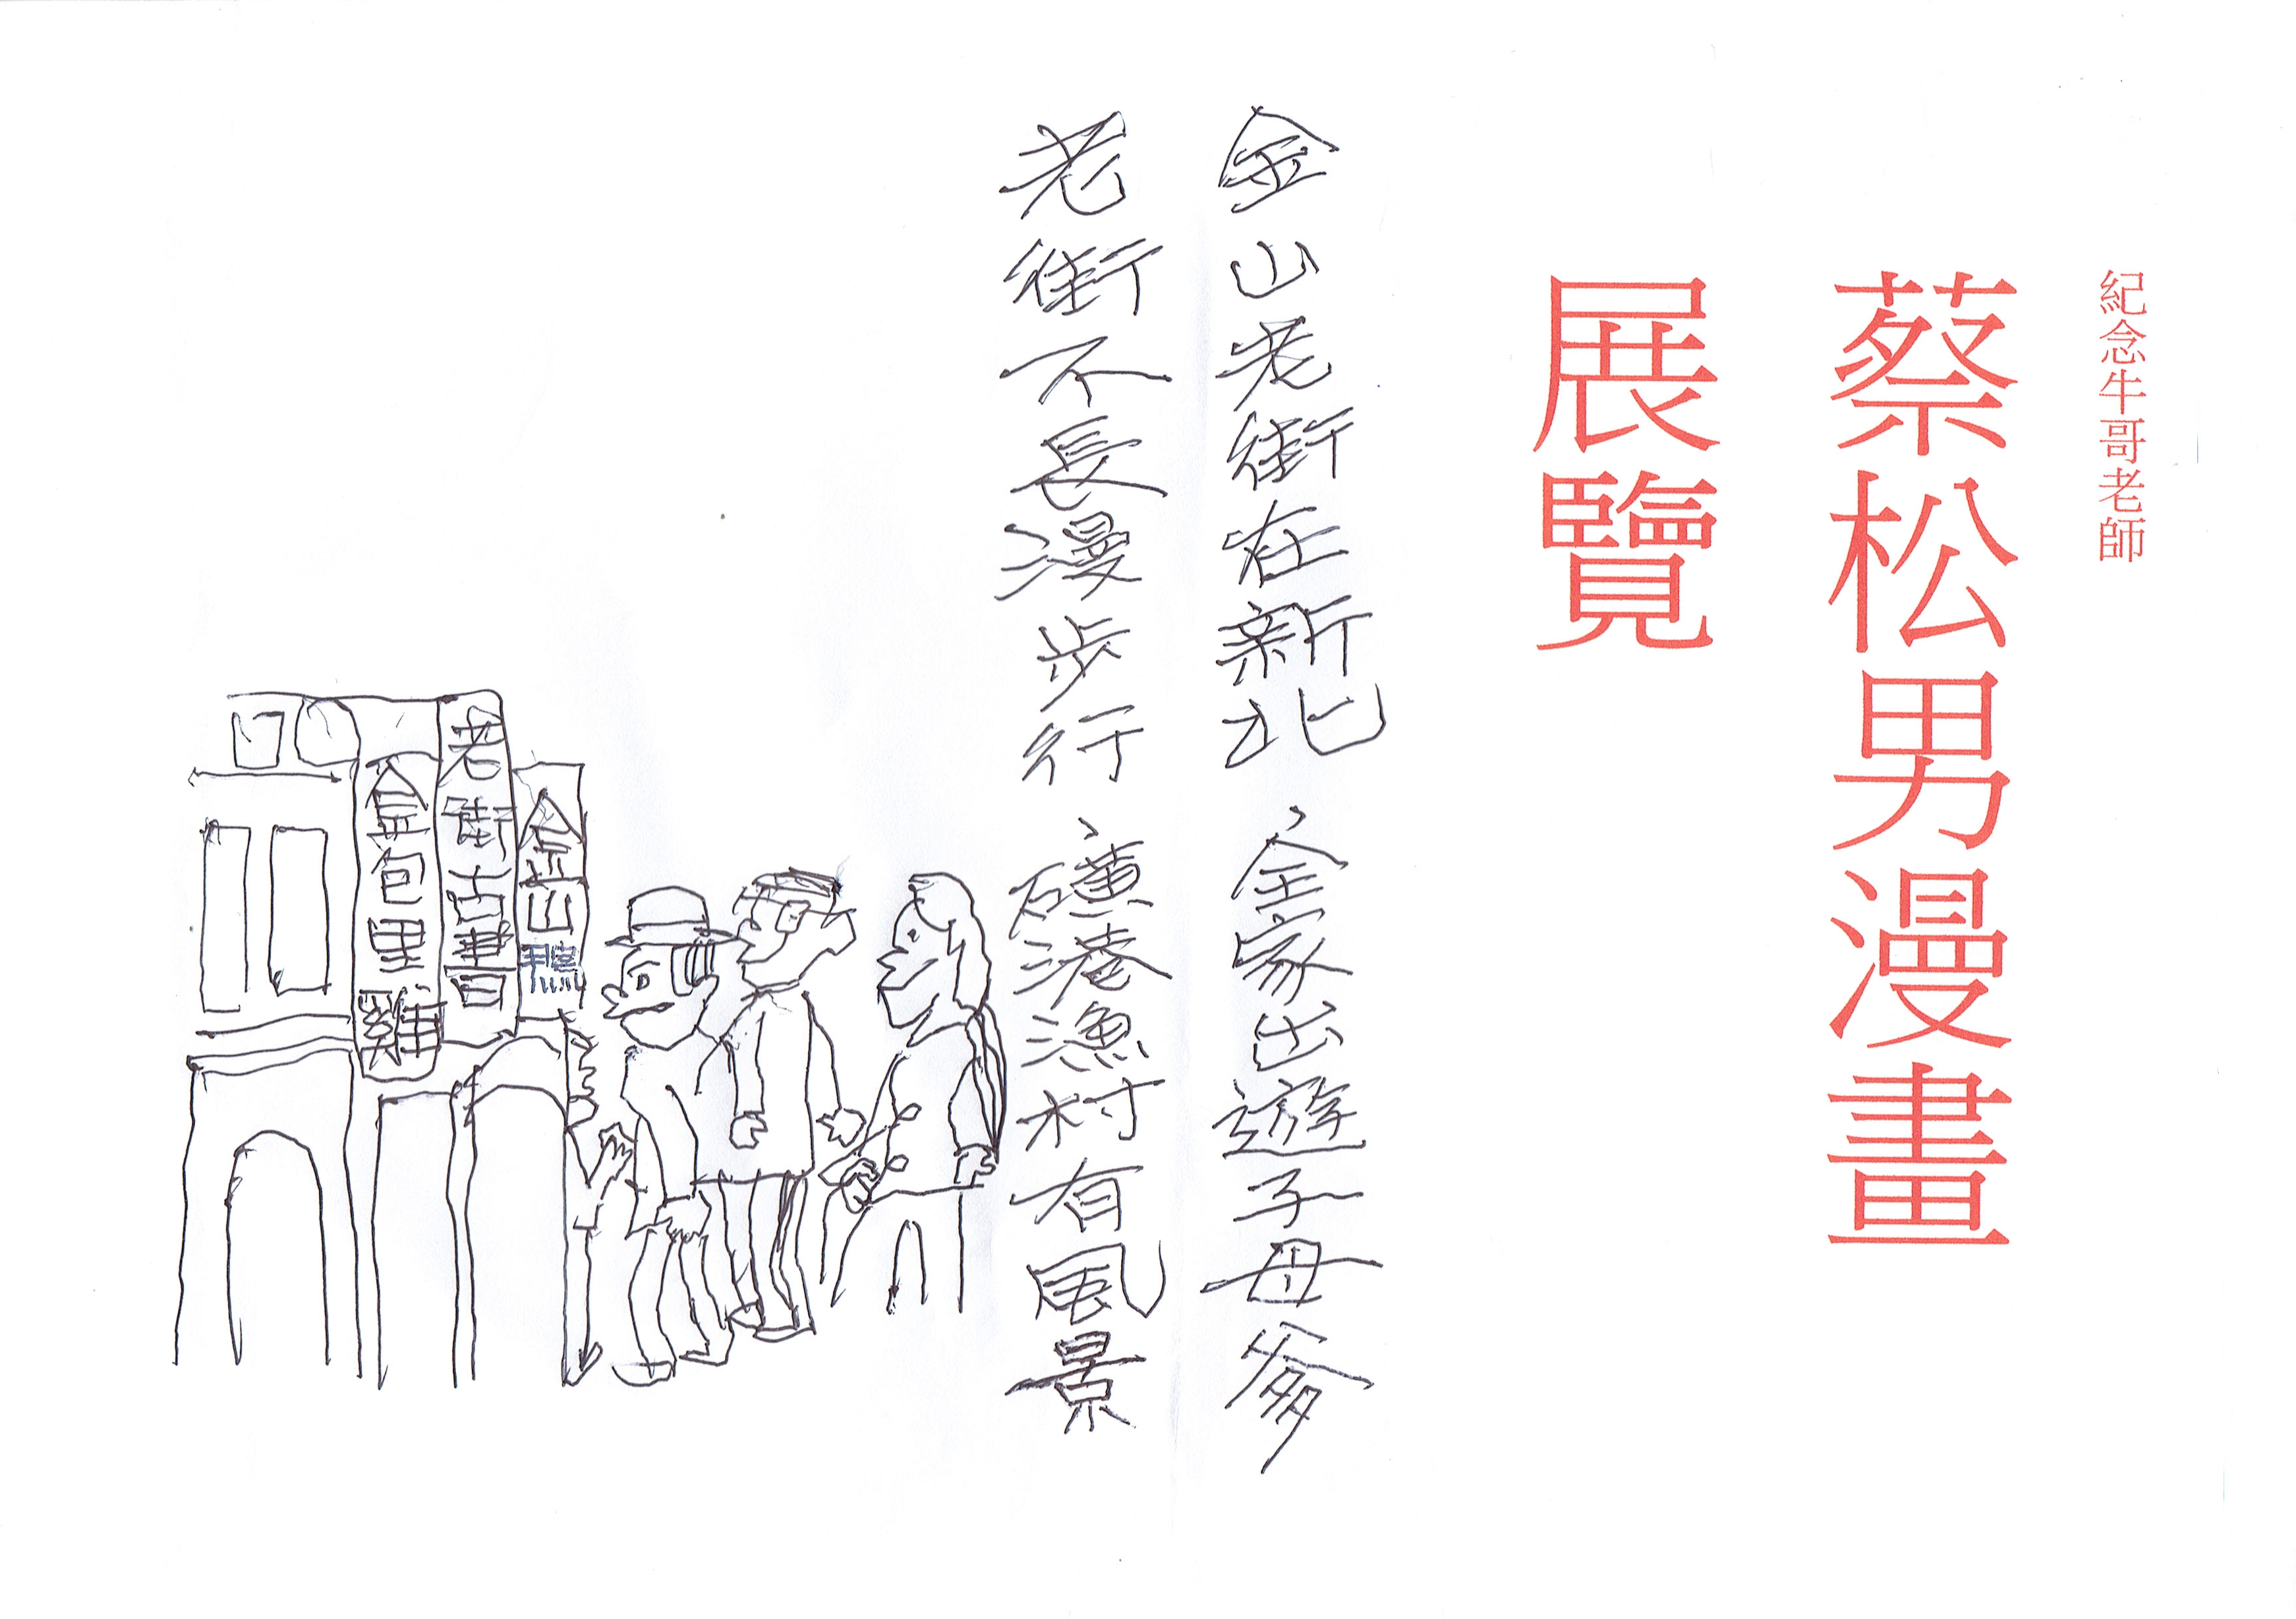 紀念牛哥老師
蔡松男漫畫
展覽
金山老街在新北、全家出遊子母爹
老街不長漫步行、磺港漁村有風景
金山鴨
老街古書
金包里雞